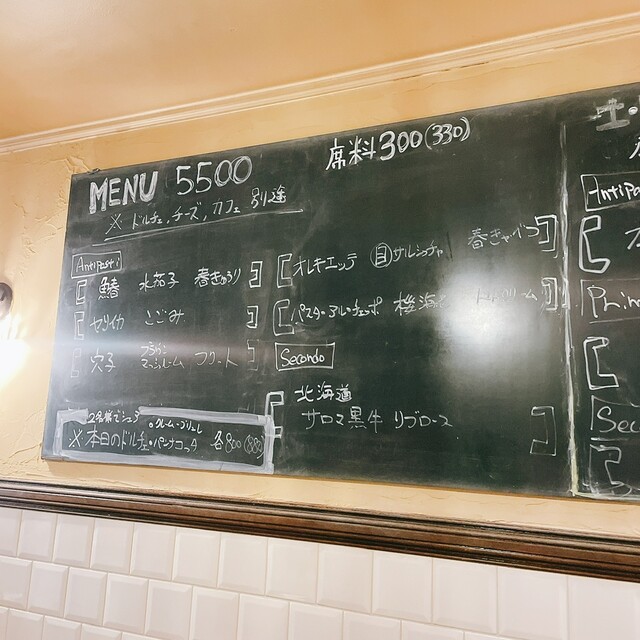 MENU 5500
席料300(330)
※ ドルチェ,チーズ,カフェ 別途
Antipasti
鰆 水茄子 春きゅうり
ヤリイカ こごみ
穴子 ブラウンマッシュルーム フリット
オレキエッテ 自サルシッチャ 春キャベツ
パスタ・アル・チェッポ 桜海老
Secondo
北海道
サロマ黒牛 リブロース
2名様でシェア
・クレームブリュレ
※本日のドルチェ・パンナコッタ 各800(880)
土・
Antipa
Prim
Sec